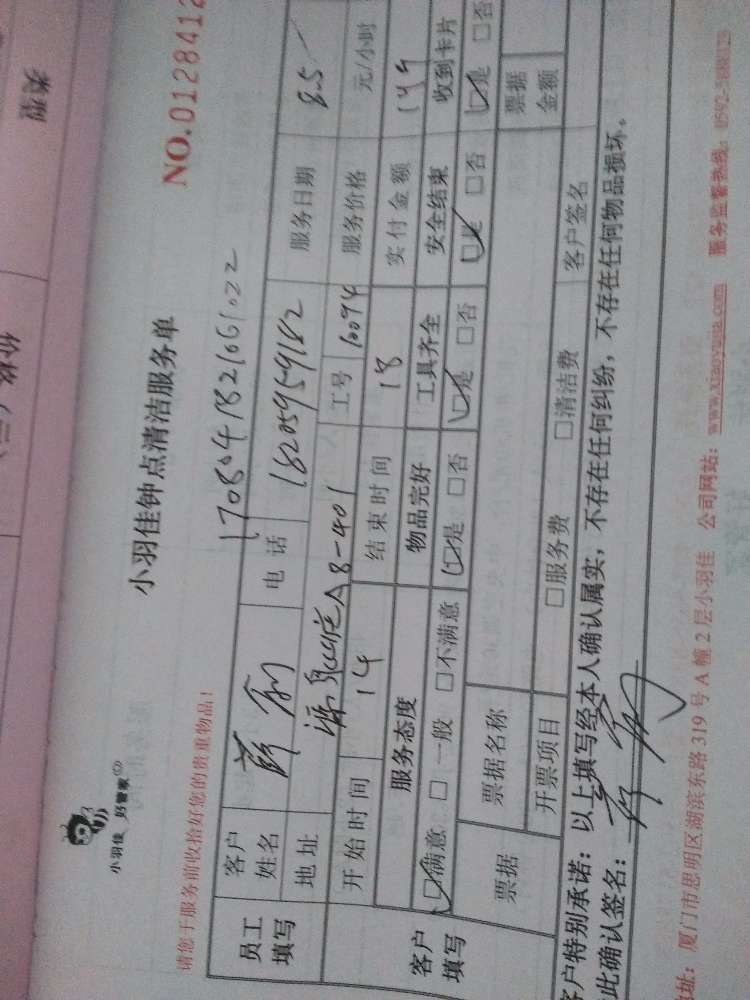 类型
价格（元）
小羽佳 好管家
小羽佳钟点清洁服务单
NO.0128412
请您于服务前收拾好您的贵重物品！
1708041821061022
员工填写
客户姓名 薛 电话 18205959182 服务日期 8.5
地址 8-401 工号 10094 服务价格 元/小时
开始时间 14 结束时间 18 实付金额 144
客户填写
服务态度 物品完好 工具齐全 安全结束 收到卡片
☑满意 □一般 □不满意 ☑是 □否 ☑是 □否 ☑是 □否 ☑是 □否
票据 票据名称 票据金额
开票项目 □服务费 □清洁费 客户签名
客户特别承诺：以上填写经本人确认属实，不存在任何纠纷，不存在任何物品损坏。
此确认签名：
址：厦门市思明区湖滨东路319号A幢2层小羽佳 公司网站：www.xiaoyujia.com 服务监督热线：